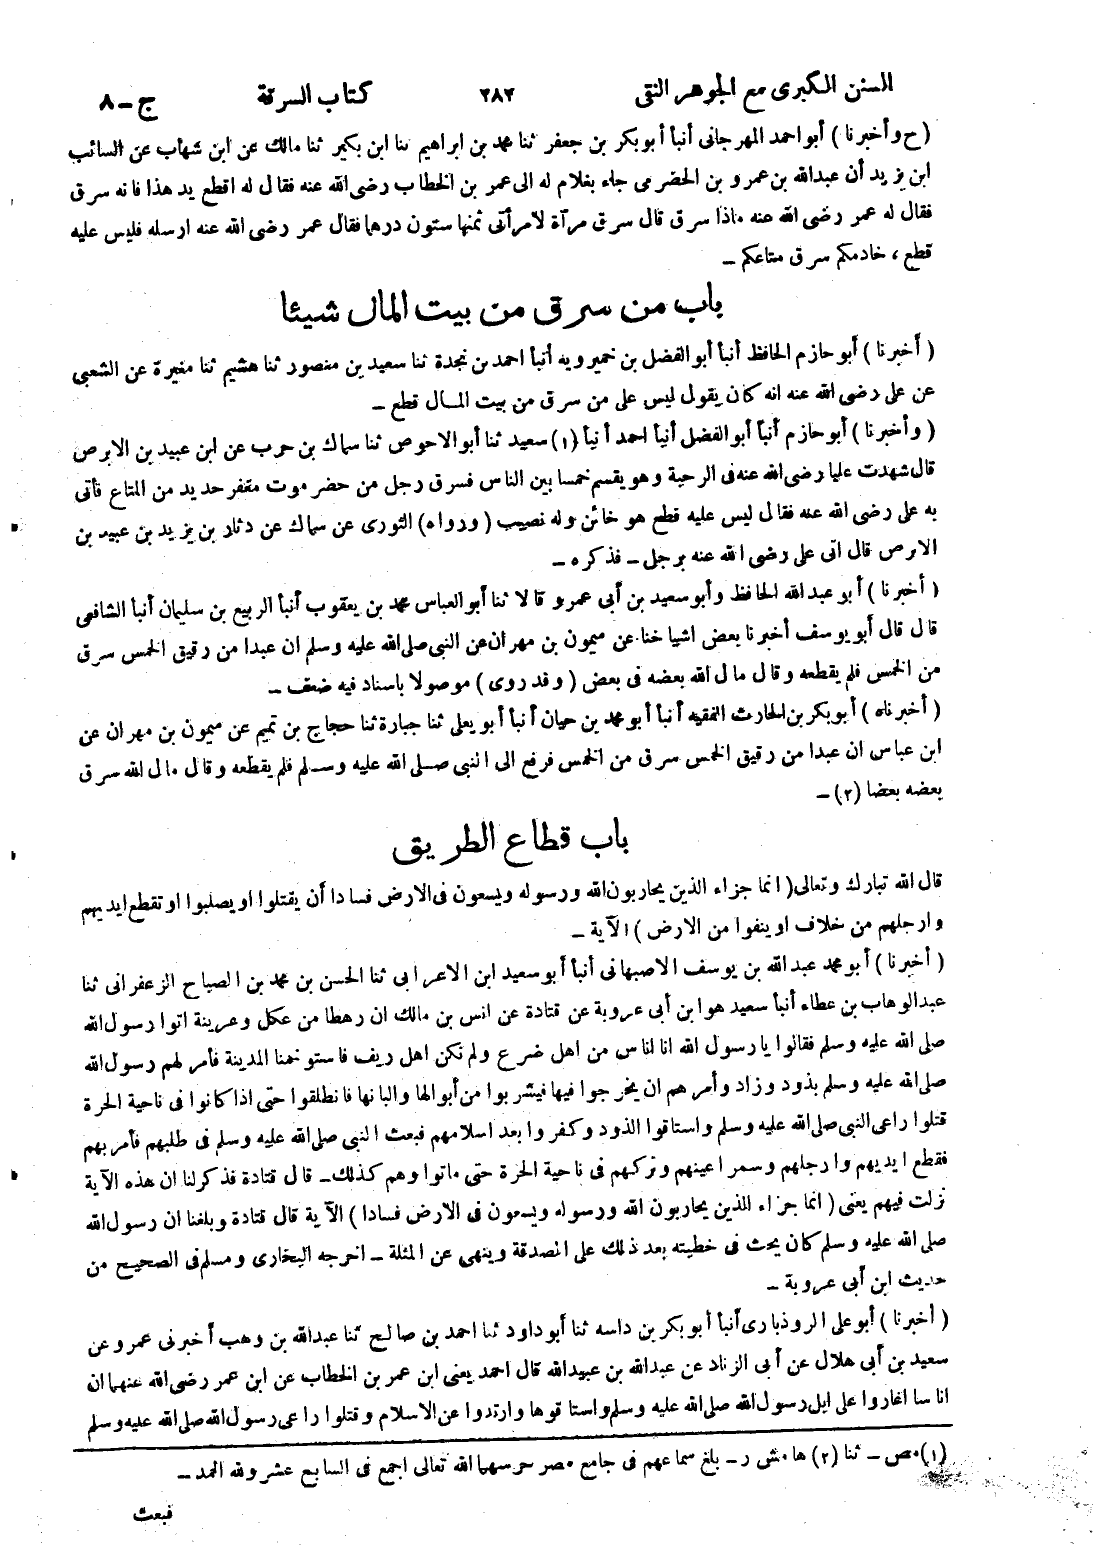 السنن الكبرى مع الجوهر النقى ٢٨٢ كتاب السرقة ج-٨
(ح وأخبرنا) أبو احمد المهرجانى أنبأ أبو بكر بن جعفر ثنا محمد بن ابراهيم ثنا ابن بكير ثنا مالك عن ابن شهاب عن السائب
ابن يزيد أن عبدالله بن عمرو بن الحضرمى جاء بغلام له الى عمر بن الخطاب رضى الله عنه فقال له اقطع يد هذا فانه سرق
فقال له عمر رضى الله عنه ماذا سرق قال سرق مرآة لامرأتى ثمنها ستون درهما فقال عمر رضى الله عنه ارسله فليس عليه
قطع ، خادمكم سرق متاعكم -
باب من سرق من بيت المال شيئا
(أخبرنا) أبو حازم الحافظ أنبأ أبو الفضل بن خميرويه أنبأ احمد بن نجدة ثنا سعيد بن منصور ثنا هشيم ثنا مغيرة عن الشعبى
عن على رضى الله عنه انه كان يقول ليس على من سرق من بيت المال قطع -
(وأخبرنا) أبو حازم أنبأ أبو الفضل أنبأ احمد أنبأ (١) سعيد ثنا أبو الاحوص ثنا سماك بن حرب عن ابن عبيد بن الابرص
قال شهدت عليا رضى الله عنه فى الرحبة وهو يقسم خمسا بين الناس فسرق رجل من حضر موت مغفر حديد من المتاع فأتى
به على رضى الله عنه فقال ليس عليه قطع هو خائن وله نصيب (ورواه) الثورى عن سماك عن دثار بن يزيد بن عبيد بن
الابرص قال اتى على رضى الله عنه برجل - فذكره -
(أخبرنا) أبو عبدالله الحافظ وأبو سعيد بن أبى عمرو قالا ثنا أبو العباس محمد بن يعقوب أنبأ الربيع بن سليمان أنبأ الشافعى
قال قال أبو يوسف أخبرنا بعض اشياخنا عن ميمون بن مهران عن النبى صلى الله عليه وسلم ان عبدا من رقيق الخمس سرق
من الخمس فلم يقطعه وقال مال الله بعضه فى بعض (وقد روى) موصولا باسناد فيه ضعف -
(أخبرناه) أبو بكر بن الحارث الفقيه أنبأ أبو محمد بن حيان أنبأ أبو يعلى ثنا جبارة ثنا حجاج بن تميم عن ميمون بن مهران عن
ابن عباس ان عبدا من رقيق الخمس سرق من الخمس فرفع الى النبى صلى الله عليه وسلم فلم يقطعه وقال مال الله سرق
بعضه بعضا (٢) -
باب قطاع الطريق
قال الله تبارك وتعالى (انما جزاء الذين يحاربون الله ورسوله ويسعون فى الارض فسادا أن يقتلوا او يصلبوا او تقطع ايديهم
وارجلهم من خلاف او ينفوا من الارض) الآية -
(أخبرنا) أبو محمد عبدالله بن يوسف الاصبهانى أنبأ أبو سعيد ابن الاعرابى ثنا الحسن بن محمد بن الصباح الزعفرانى ثنا
عبدالوهاب بن عطاء أنبأ سعيد هو ابن أبى عروبة عن قتادة عن انس بن مالك ان رهطا من عكل وعرينة اتوا رسول الله
صلى الله عليه وسلم فقالوا يارسول الله انا اناس من اهل ضرع ولم نكن اهل ريف فاستوخمنا المدينة فأمر لهم رسول الله
صلى الله عليه وسلم بذود وزاد وأمرهم ان يخرجوا فيها فيشربوا من أبوالها والبانها فانطلقوا حتى اذا كانوا فى ناحية الحرة
قتلوا راعى النبى صلى الله عليه وسلم واستاقوا الذود وكفروا بعد اسلامهم فبعث النبى صلى الله عليه وسلم فى طلبهم فأمر بهم
فقطع ايديهم وارجلهم وسمر اعينهم وتركهم فى ناحية الحرة حتى ماتوا وهم كذلك - قال قتادة فذكر لنا ان هذه الآية
نزلت فيهم يعنى (انما جزاء الذين يحاربون الله ورسوله ويسعون فى الارض فسادا) الآية قال قتادة وبلغنا ان رسول الله
صلى الله عليه وسلم كان يحث فى خطبته بعد ذلك على الصدقة وينهى عن المثلة - اخرجه البخارى ومسلم فى الصحيح من
حديث ابن أبى عروبة -
(أخبرنا) أبو على الروذبارى أنبأ أبو بكر بن داسه ثنا أبو داود ثنا احمد بن صالح ثنا عبدالله بن وهب أخبرنى عمرو عن
سعيد بن أبى هلال عن أبى الزناد عن عبدالله بن عبيدالله قال احمد يعنى ابن عمر بن الخطاب عن ابن عمر رضى الله عنهما ان
اناسا اغاروا على ابل رسول الله صلى الله عليه وسلم واستاقوها وارتدوا عن الاسلام وقتلوا راعى رسول الله صلى الله عليه وسلم
(١) مص - ثنا (٢) هامش ر - بلغ سماعهم فى جامع مصر حرسهما الله تعالى اجمع فى السابع عشر ولله الحمد -
فبعث